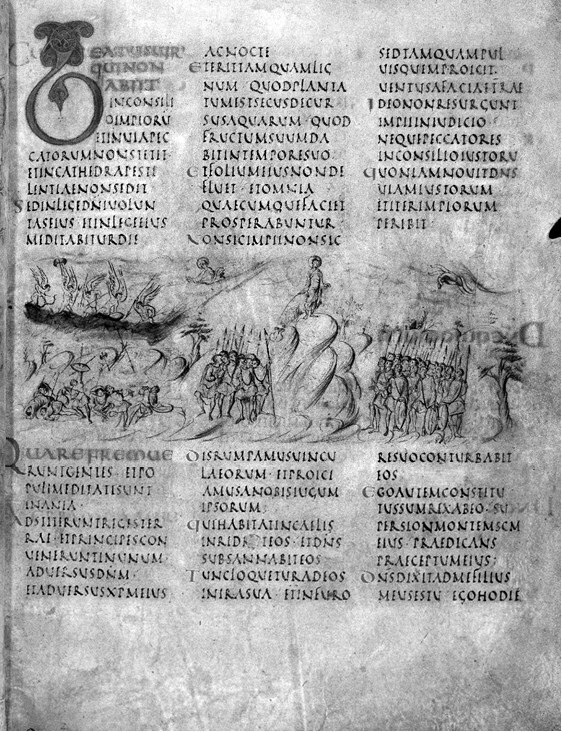 BEATUSUIR
QUINON
ABIIT
INCONSILI
OIMPIORU
ETINUIAPEC
CATORUMNONSTETIT
ETINCATHEDRAPESTI
LENTIAENONSEDIT
SEDINLEGEDNIUOLUN
TASEIUS ETINLEGEEIUS
MEDITABITURDIE
ACNOCTE
ETERITTAMQUAMLIG
NUM QUODPLANTA
TUMESTSECUSDECUR
SUSAQUARUM QUOD
FRUCTUMSUUMDA
BITINTEMPORESUO
ETFOLIUMEIUSNONDE
FLUET ETOMNIA
QUAECUMQUEFACIET
PROSPERABUNTUR
NONSICIMPIINONSIC
SEDTAMQUAMPUL
UISQUEMPROICIT
UENTUSAFACIETERRAE
IDEONONRESURGUNT
IMPIIINIUDICIO
NEQUEPECCATORES
INCONSILIOIUSTORU
QUONIAMNOUITDNS
UIAMIUSTORUM
ETITERIMPIORUM
PERIBIT
QUAREFREMUE
RUNTGENTES ETPO
PULIMEDITATISUNT
INANIA·
ADSTITERUNTREGESTER
RAE ETPRINCIPESCON
UENERUNTINUNUM·
ADUERSUSDNM·
ETADUERSUSXPMEIUS
DISRUMPAMUSUINCU
LAEORUM· ETPROICI
AMUSANOBISIUGUM
IPSORUM·
QUIHABITATINCAELIS
INRIDEBITEOS· ETDNS
SUBSANNABITEOS
TUNCLOQUETURADEOS
INIRASUA ETINFURO
RESUOCONTURBABIT
EOS·
EGOAUTEMCONSTITU
TUSSUMREXABEO· SU
PERSIONMONTEMSCM
EIUS PRAEDICANS
PRAECEPTUMEIUS;
DNSDIXITADMEFILIUS
MEUSESTU EGOHODIE